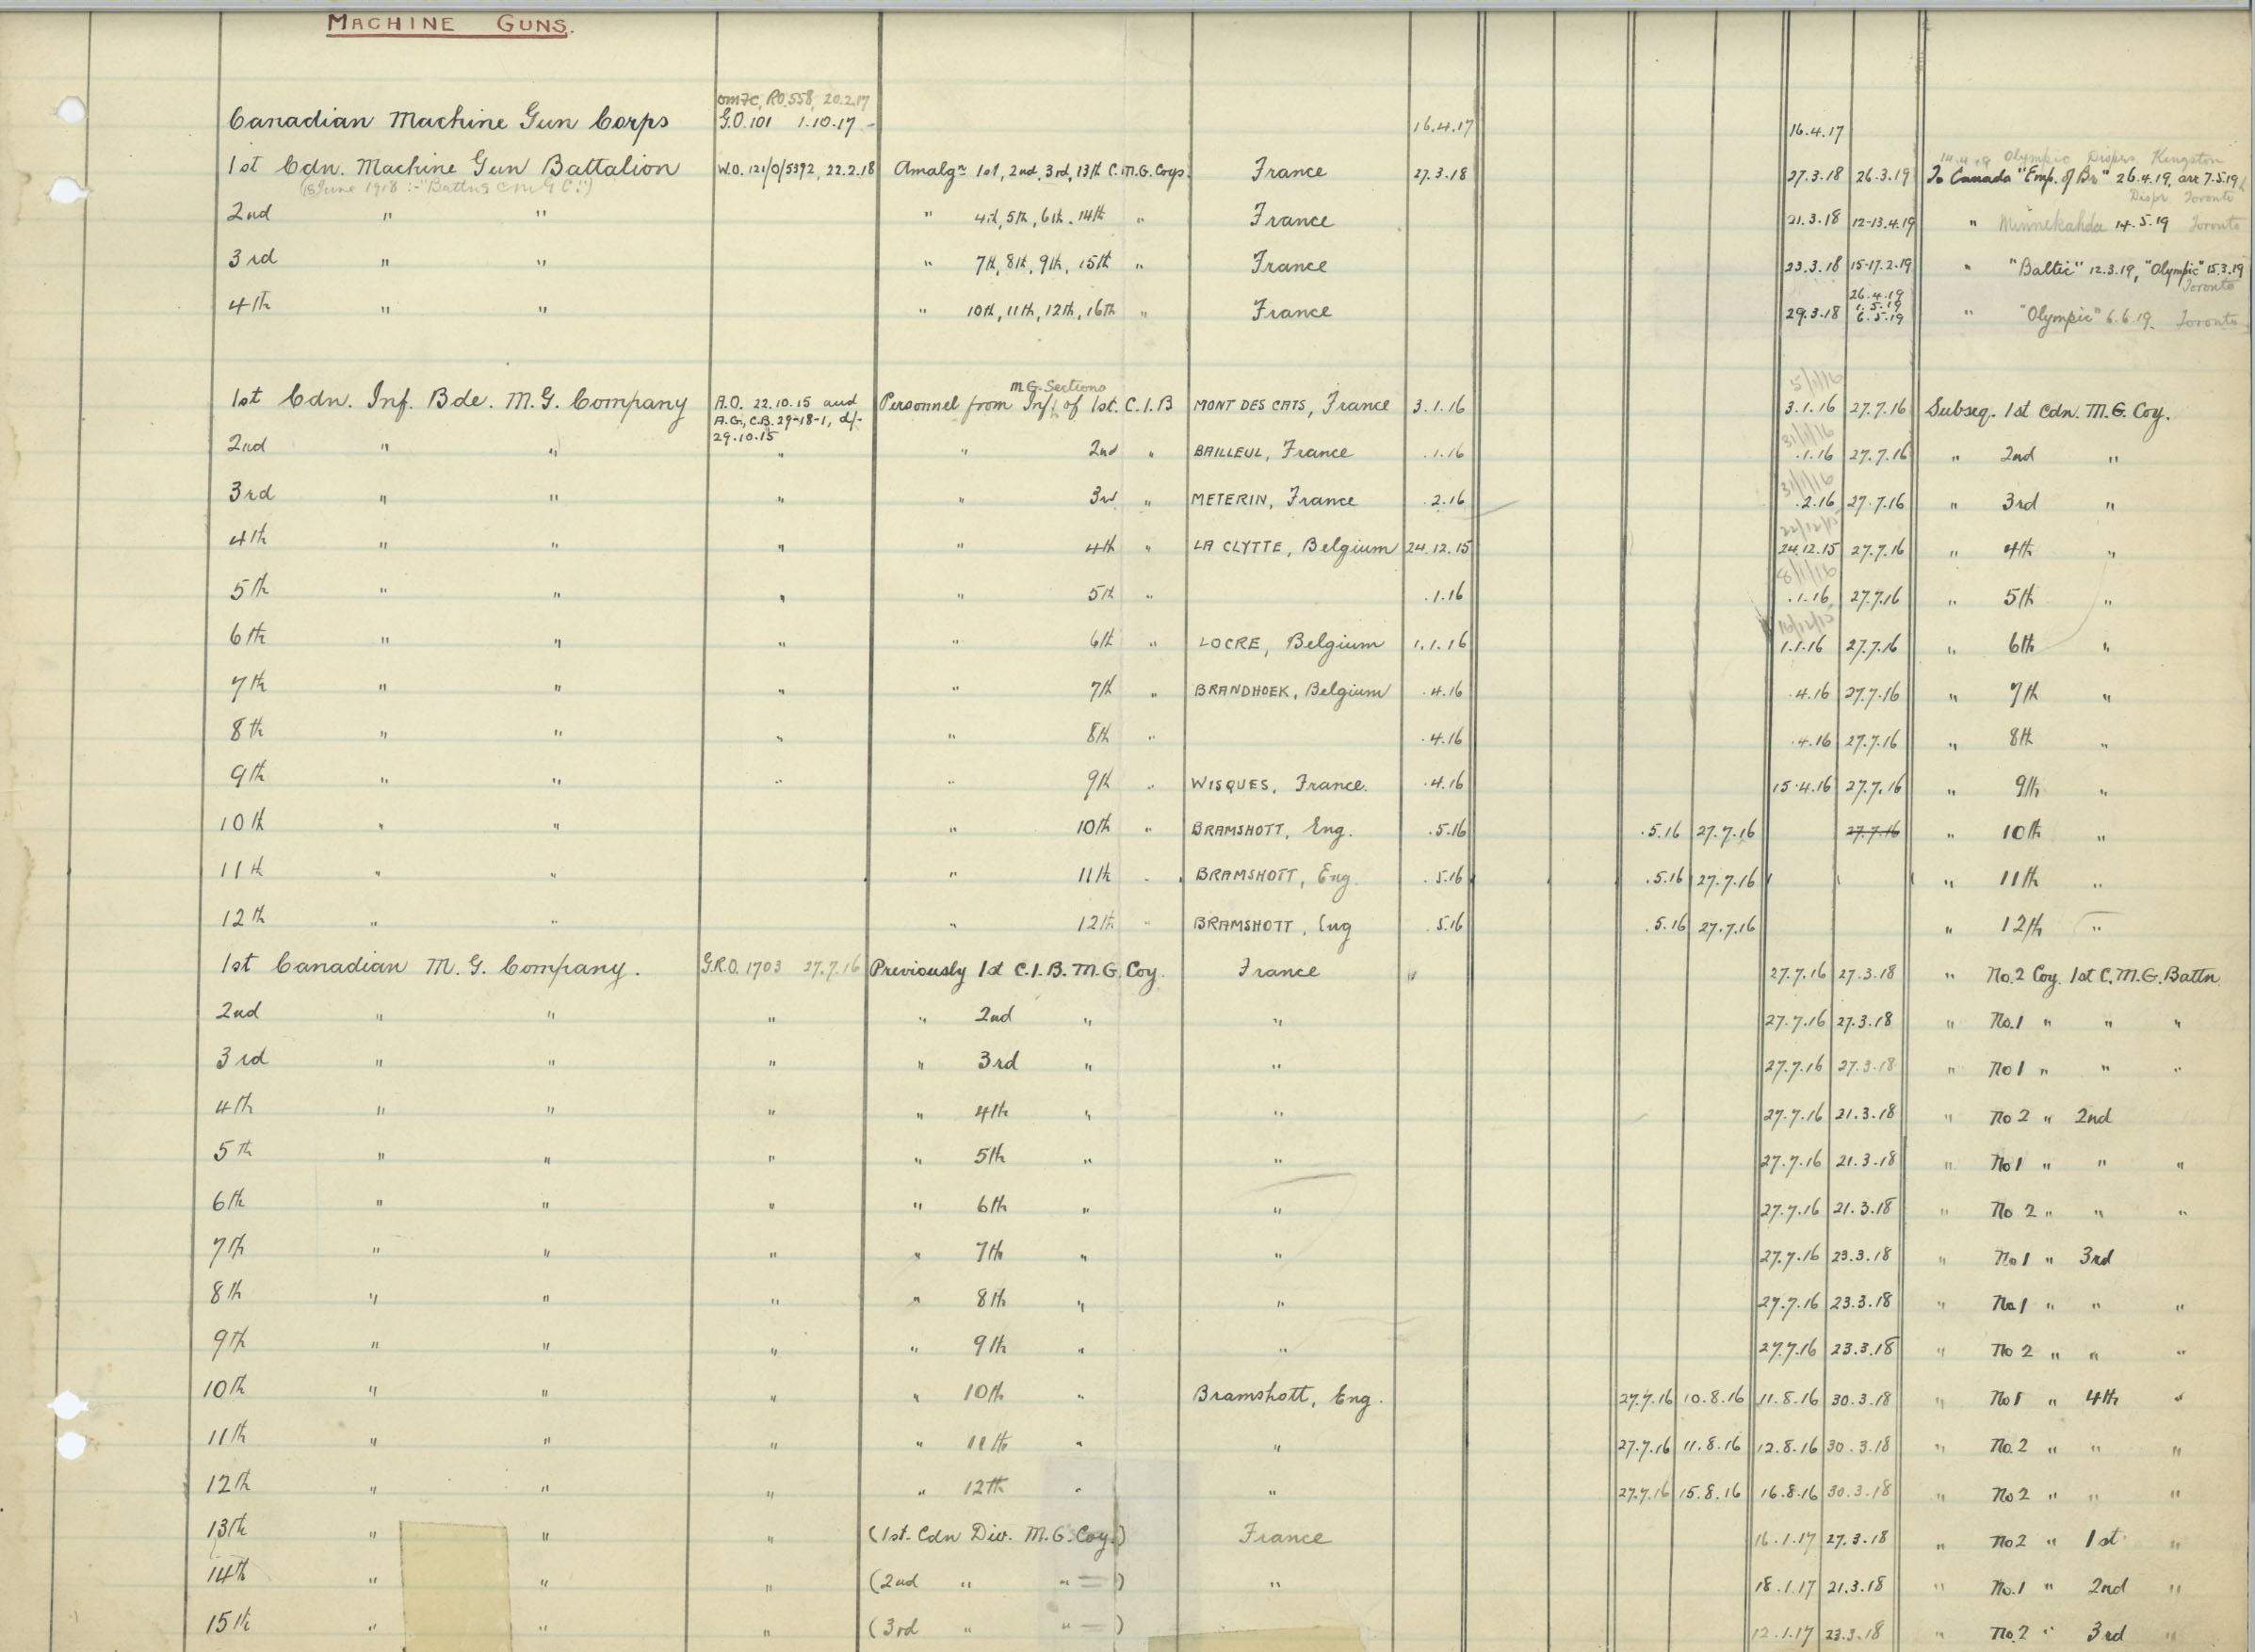 MACHINE GUNS.
R.O. 558, 20.2.17
Canadian Machine Gun Corps G.O. 101 1.10.17 - 16.4.17 16.4.17
14.4.19 Olympic Dispers Kingston
1st Cdn. Machine Gun Battalion W.O. 121/0/5392, 22.2.18 Amalgn 1st, 2nd, 3rd, 13th C.M.G. Coys. France 27.3.18 27.3.18 26.3.19 To Canada "Emp. of Br" 26.4.19, arr 7.5.19
June 1918 :- "Battns C M G C")
Dispr. Toronto
2nd " " " 4th, 5th, 6th, 14th " France 21.3.18 12-13.4.19 " Minnekahda 14.5.19 Toronto
3rd " " " 7th, 8th, 9th, 15th " France 23.3.18 15-17.2.19 " "Baltic" 12.3.19, "Olympic" 15.3.19
Toronto
26.4.19
1.5.19
4th " " " 10th, 11th, 12th, 16th " France 29.3.18 6.5.19 " "Olympic" 6.6.19. Toronto
M.G. Sections 5/1/16
1st Cdn. Inf. Bde. M.G. Company A.O. 22.10.15 and Personnel from Inf. of 1st. C.I.B MONT DES CATS, France 3.1.16 3.1.16 27.7.16 Subseq. 1st Cdn. M.G. Coy.
A.G., C.B. 29-18-1, d/-
29.10.15 31/1/16
2nd " " " " 2nd " BAILLEUL, France .1.16 .1.16 27.7.16 " 2nd "
31/1/16
3rd " " " " 3rd " METERIN, France .2.16 .2.16 27.7.16 " 3rd "
22/12/15
4th " " " " 4th " LA CLYTTE, Belgium 24.12.15 24.12.15 27.7.16 " 4th "
8/1/16
5th " " " " 5th " .1.16 .1.16 27.7.16 " 5th "
16/12/15
6th " " " " 6th " LOCRE, Belgium 1.1.16 1.1.16 27.7.16 " 6th "
7th " " " " 7th " BRANDHOEK, Belgium .4.16 .4.16 27.7.16 " 7th "
8th " " " " 8th " .4.16 .4.16 27.7.16 " 8th "
9th " " " " 9th " WISQUES, France. .4.16 15.4.16 27.7.16 " 9th "
10th " " " 10th " BRAMSHOTT, Eng. .5.16 .5.16 27.7.16 27.7.16 " 10th "
11th " " " 11th " BRAMSHOTT, Eng. .5.16 .5.16 27.7.16 " 11th "
12th " " " 12th " BRAMSHOTT, Eng 5.16 .5.16 27.7.16 " 12th "
1st Canadian M.G. Company. G.R.O. 1703 27.7.16 Previously 1st C.I.B. M.G. Coy. France " 27.7.16 27.3.18 " No.2 Coy. 1st C.M.G. Battn.
2nd " " " " 2nd " " 27.7.16 27.3.18 " No.1 " " "
3rd " " " " 3rd " " 27.7.16 27.3.18 " No 1 " " "
4th " " " " 4th " " 27.7.16 21.3.18 " No 2 " 2nd
5th " " " " 5th " " 27.7.16 21.3.18 " No 1 " " "
6th " " " " 6th " " 27.7.16 21.3.18 " No 2 " " "
7th " " " " 7th " " 27.7.16 23.3.18 " No 1 " 3rd
8th " " " " 8th " " 27.7.16 23.3.18 " No 1 " " "
9th " " " " 9th " " 27.7.16 23.3.18 " No 2 " " "
10th " " " " 10th " Bramshott, Eng. 27.7.16 10.8.16 11.8.16 30.3.18 " No 1 " 4th "
11th " " " " 11th " " 27.7.16 11.8.16 12.8.16 30.3.18 " No.2 " " "
12th " " " " 12th " " 27.7.16 15.8.16 16.8.16 30.3.18 " No 2 " " "
13th " " " (1st. Cdn Div. M.G. Coy.) France 16.1.17 27.3.18 " No 2 " 1st "
14th " " " (2nd " " ) " 18.1.17 21.3.18 " No.1 " 2nd "
15th " " " (3rd " " ) 12.1.17 23.3.18 " No.2 " 3rd "